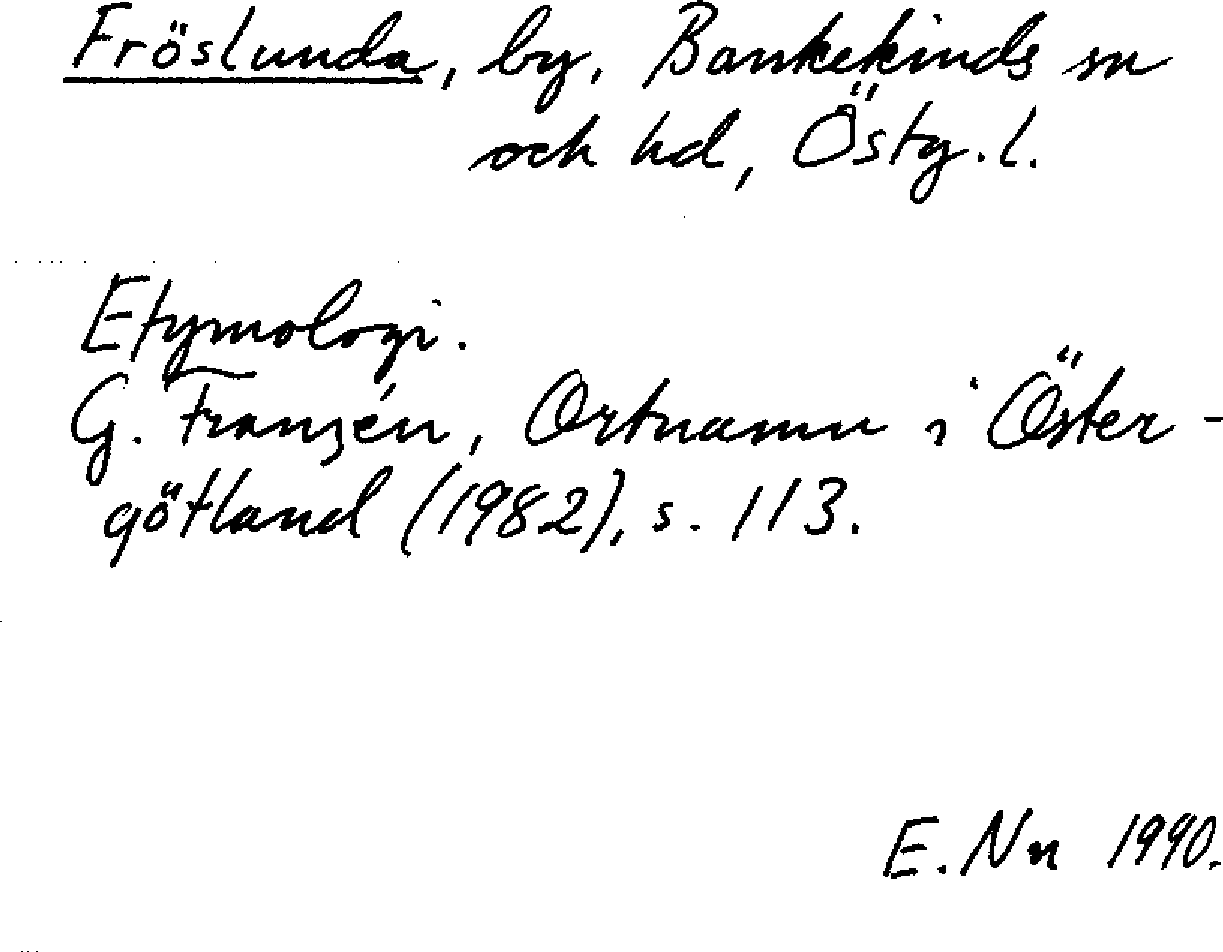 Fröslunda, by, Bankekinds sn
och hd, Östg. l.
Etymologi.
G. Franzén, Ortnamn i Öster-
götland (1982), s. 113.
E. Nn 1990.